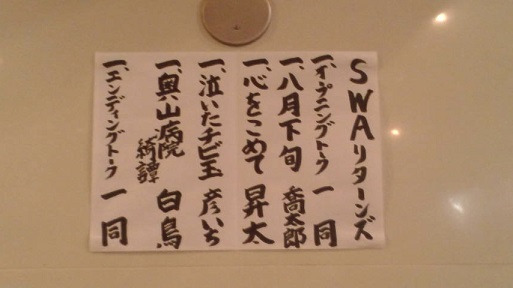 SWAリターンズ
一、オープニングトーク 一同
一、八月下旬 喬太郎
一、心をこめて 昇太
一、泣いたチビ玉 彦いち
一、奥山病院綺譚 白鳥
一、エンディングトーク 一同